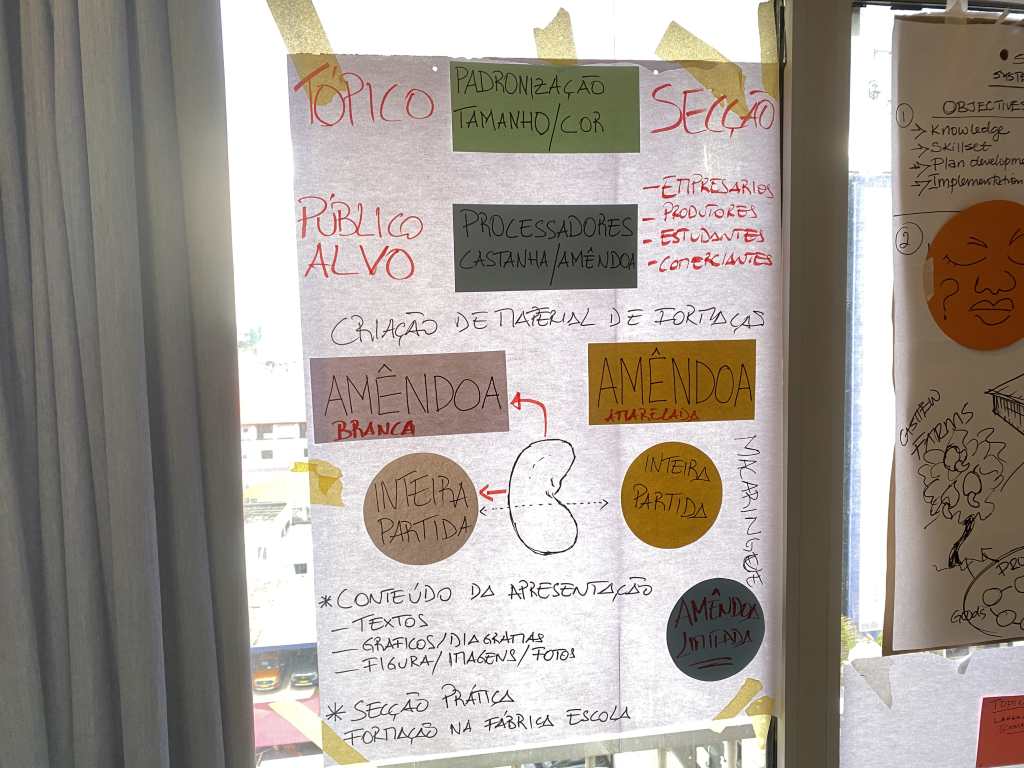 TÓPICO
PADRONIZAÇÃO
TAMANHO/COR
SECÇÃO
PÚBLICO
ALVO
PROCESSADORES
CASTANHA/AMÊNDOA
- EMPRESARIOS
- PRODUTORES
- ESTUDANTES
- COMERCIANTES
CRIAÇÃO DE MATERIAL DE FORMAÇÃS
AMÊNDOA
BRANCA
AMÊNDOA
AMARELADA
INTEIRA
PARTIDA
INTEIRA
PARTIDA
MACARINGUE
* CONTEÚDO DA APRESENTAÇÃO
- TEXTOS
- GRÁFICOS/DIAGRAMAS
- FIGURA/IMAGENS/FOTOS
AMÊNDOA
* SECÇÃO PRÁTICA
FORMAÇÃO NA FÁBRICA ESCOLA
1
OBJECTIVES
→ Knowledge
→ Skillset
→ Plan developm
→ Implementation
2
?
FARMS
GOODS